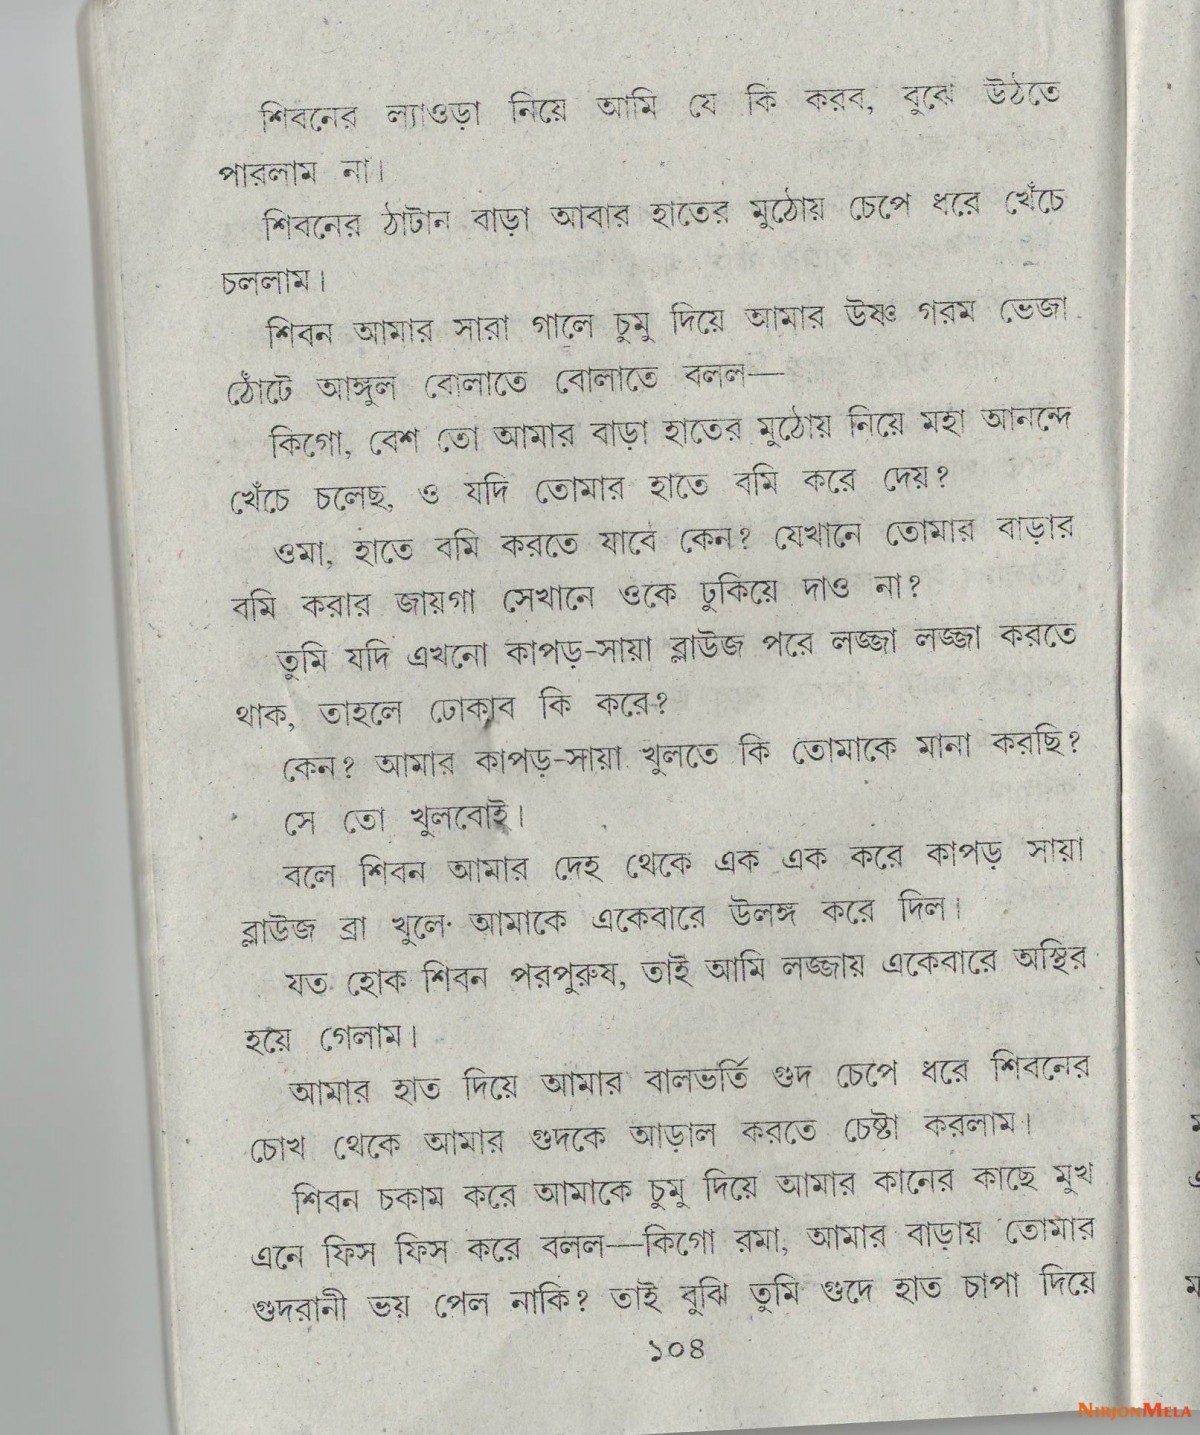 শিবনের ল্যাওড়া নিয়ে আমি যে কি করব, বুঝে উঠতে
পারলাম না।
শিবনের ঠাটান বাড়া আবার হাতের মুঠোয় চেপে ধরে খেঁচে
চললাম।
শিবন আমার সারা গালে চুমু দিয়ে আমার উষ্ণ গরম ভেজা
ঠোঁটে আঙ্গুল বোলাতে বোলাতে বলল—
কিগো, বেশ তো আমার বাড়া হাতের মুঠোয় নিয়ে মহা আনন্দে
খেঁচে চলেছ, ও যদি তোমার হাতে বমি করে দেয়?
ওমা, হাতে বমি করতে যাবে কেন? যেখানে তোমার বাড়ার
বমি করার জায়গা সেখানে ওকে ঢুকিয়ে দাও না?
তুমি যদি এখনো কাপড়-সায়া ব্লাউজ পরে লজ্জা লজ্জা করতে
থাক, তাহলে ঢোকাব কি করে?
কেন? আমার কাপড়-সায়া খুলতে কি তোমাকে মানা করছি?
সে তো খুলবোই।
বলে শিবন আমার দেহ থেকে এক এক করে কাপড় সায়া
ব্লাউজ ব্রা খুলে আমাকে একেবারে উলঙ্গ করে দিল।
যত হোক শিবন পরপুরুষ, তাই আমি লজ্জায় একেবারে অস্থির
হয়ে গেলাম।
আমার হাত দিয়ে আমার বালভর্তি গুদ চেপে ধরে শিবনের
চোখ থেকে আমার গুদকে আড়াল করতে চেষ্টা করলাম।
শিবন চকাম করে আমাকে চুমু দিয়ে আমার কানের কাছে মুখ
এনে ফিস ফিস করে বলল—কিগো রমা, আমার বাড়ায় তোমার
গুদরানী ভয় পেল নাকি? তাই বুঝি তুমি গুদে হাত চাপা দিয়ে
১০৪
NIRJONMELA